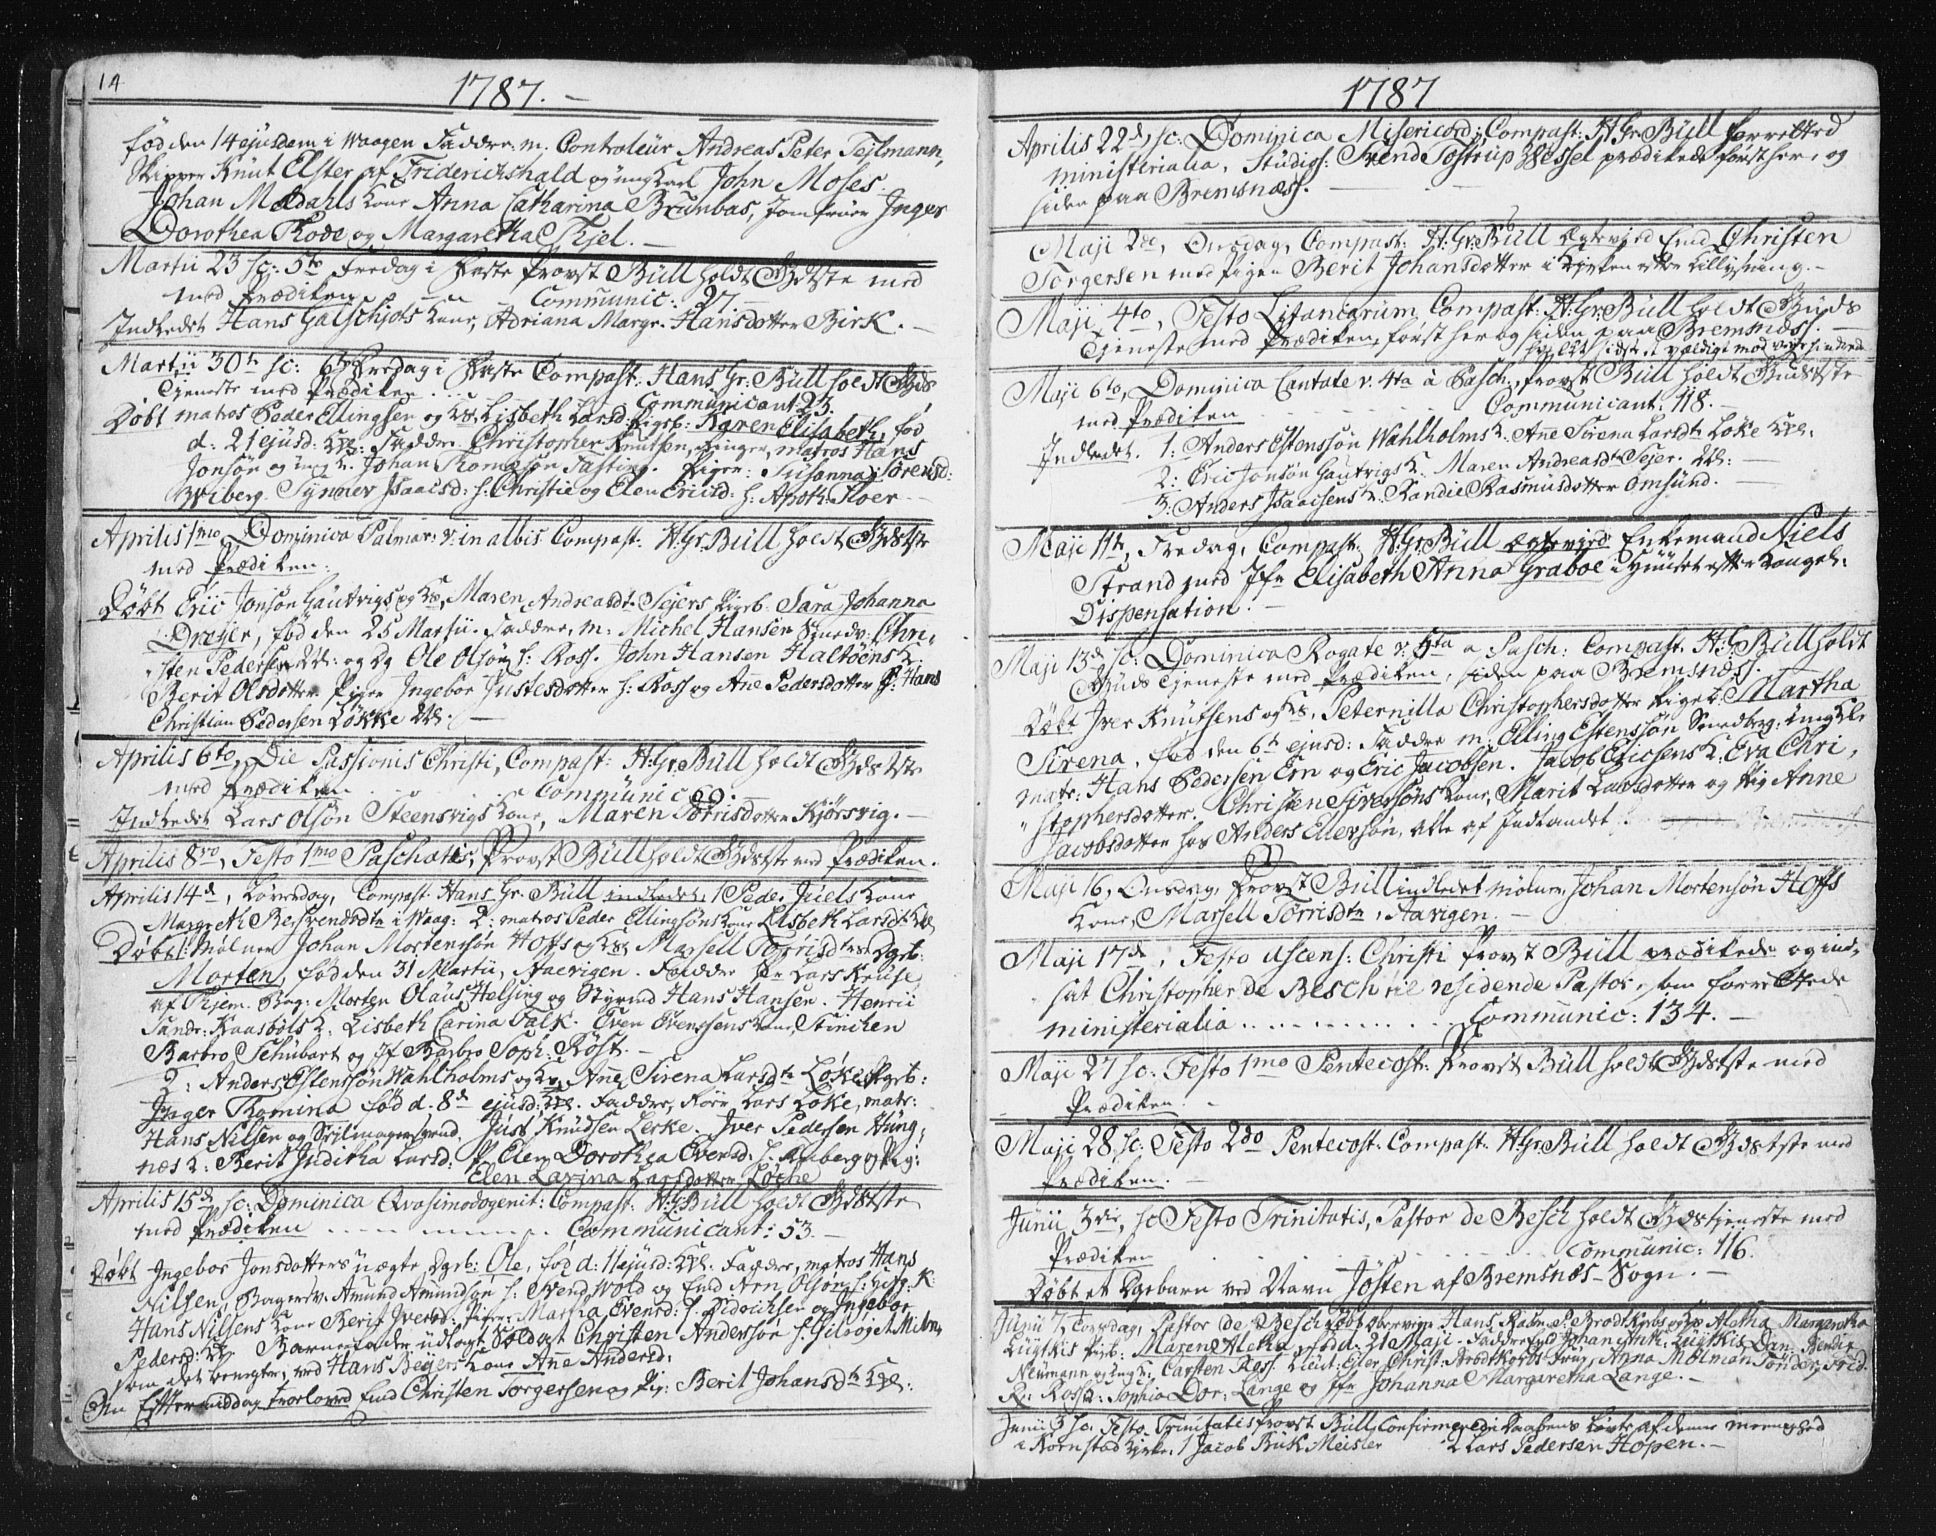 14
1787.
fød den 14 ejusdem i Waagen Faddere m. Controleur Andreas Peter Tejlmann,
Skipper Knut Elster af Friderichshald og ungkarl John Moses.
Johan Mældahls Kone Anna Catharina Brunbas, Jomfruer Inger
Dorothea Thode og Margaretha Kjel.
Martii 23 sc: 5te Fredag i Faste Provst Büll holdt Gdstste med
med Prædiken Communic: 27.
Indledet Hans Galschjøts Kone, Adriana Margr. Hansdotter Birk.
Martii 30te sc: 6te Fredag i Faste Compast: Hans Gr: Büll holdt Gds
Tjeneste med Prædiken. Communicant: 23.
Døbt matros Peder Ellingsen og K: Lisbeth Larsd: Pigeb: Karen Elisabeth, fød
d: 21 ejusd: Faddre Christopher Knutsen, matros Hans
Jonsøn og ungk. Johan Thomæsøn Tasting. Piger: Susanna Sørensd:
Wiberg. Synnev Isaacsd: h: Christie og Elen Ericsd: h: Apoth: Floer
Aprilis 1mo Dominica Palmar: v: in albis Compast: H. Gr. Büll holdt Gdstste
med Prædiken.
Døbt Eric Jonsøn Hautvigs og K, Maren Andreasdtr Sejers Pigeb: Sara Johanna
Dreyer, fød den 25 Martii. Faddre, m: Michel Hansen Smedv: Chri,
sten Pedersen og Dg Ole Olsøn h: Ross. John Hansen Haltøens K.
Berit Olsdotter Piger Ingebor Justesdotter h: Ross og Ane Pedersdotter h: Hans
Christian Pedersen Løkke
Aprilis 6to, Die Passionis Christi, Compast: H. Gr. Büll holdt Gdstste
med Prædiken Communic 60.
Indledet Lars Olsøn Steensvigs Kone, Maren Tørrisdotter Kjørsvig.
Aprilis 8vo, Festo 1mo Paschatos, Provst Büll holdt Gdstste med Prædiken.
Aprilis 14d, Løverdag, Compast: Hans Gr: Büll indledet, 1 Peder Juels Kone
Margreth Besvendsdtr i Waag: 2: matros Peder Ellingsøns Kone Lisbeth Larsdtr
Døbt: Mølner Johan Mortensøn Hoffs og K: Marsell Tørrisdtrs Dgeb:
Morten, fød den 31 Martii, Aaevigen. Faddre Hr Lars Keulse
af Thjem. Bag: Morten Olaus Helsing og Styrmd Hans Hansen. Henric
Sandr: Kaasbøls K: Lisbeth Carina Falk. Even Evenssens Kone, Stinchen
Barbro Schubart og Jf Barbro Soph: Røst.
2: Anders Estenssøn Wahlholms og K: Anne Sirena Larsdtr Løke Pgeb:
Inger Thomina fød d. 8d ejusd: Faddre, Lars Løke, matr:
Hans Nilsen og Sejlmagersvend. Just Knudsen Lerke. Iver Pedersen Hung,
næs K: Berit Juditha Larsd: P Elen Dorothea Evensd: h: Amberg og Pig:
Elen Larina Larsdotter Løche
Aprilis 15d sc: Dominica Qvasimodogenit: Compast: H. Gr. Büll holdt Gdstste
med Prædiken Communicant: 53.
Døbt Ingebor Jonsdotters uægte Dgeb: Ole, fød d: 11 ejusd: Faddre, matros Hans
Nilsen, Bagersv: Amund Amundsøn h: Svend Wold og Emd Arn Olsøn
Hans Nilsens Kone Berit Iversd: Piger: Martha Evensd: h: Didrichsen og Ingebor
Pedersd: Barnefader udlagt Soldat Christen Andersøn h: Gilsøjet
som det benegter, ved Hans Beyers Kone Ane Andersd:
Om Eftermiddag trolovet Emd Christen Torgersen og Pig: Berit Johansdtr
1787
Aprilis 22d, sc: Dominica Misericord: Compast: H. Gr: Büll forretted
ministerialia, Studios: Svend Tostrup Wessel prædikede først her, og
siden paa Bremsnæss.
Maji 2de, Onsdag, Compast: H: Gr: Büll ægteviede Emd Christen
Torgersen med Pigen Berit Johansdotter i Kirken efter Lillysning.
Maji 4to, Festo Litaniarum Compast: H. Gr. Büll holdt Guds
Tjeneste med Prædiken, først her og siden paa Bremsnæss.
Maji 6to, Dominica Cantate v. 4ta à Pasch:, Provst Büll holdt Gudstste
med Prædiken Communicant: 118.
Indledet. 1: Anders Estenssøn Wahlholms K. Ane Sirena Larsdtr Løke
2: Eric Jonsøn Hautvigs K. Maren Andreasdtr Sejer.
3: Anders Isaacsens K: Randie Rasmusdotter Omsund.
Maji 11te, Fredag, Compast: H. Gr. Büll ægteviede Enkemand Niels
Strand med Jfr Elisabeth Anna Graboe i Huuset efter Kongel:
Dispensation.
Maji 13d sc: Dominica Rogate v: 5ta a Pasch: Compast. H: G Büll holdt
Guds Tjeneste med Prædiken, siden paa Bremsnæss.
Døbt Iver Knutsens og K:, Peternilla Christophersdotter Pigeb: Martha
Sirena, fød den 6te ejusd: Faddre m. Elling Estenssøn Smedberg, ungkl.
matr: Hans Pedersen Ern og Eric Jacobsen. Jacob Ericsens K. Eva Chri,
stophersdotter. Christen Siversøns Kone, Marit Larsdotter og Pig Anne
Jacobsdotter hos Anders Ellevsøn, alle af Indlandet
Maji 16, Onsdag, Provst Büll indledet mølner Johan Mortensøn Hoffs
Kone, Marsell Tørrisdtr, Aavigen.
Maji 17d, Festo Ascens: Christi Provst Büll prædikede og ind,
sat Christopher de Besche til residende Pastor, som forrettede
ministerialia Communic: 134.
Maji 27 sc: Festo 1mo Pentecost: Provst Büll holdt Gdstste med
Prædiken.
Maji 28 sc: Festo 2do Pentecost. Compast. H. Gr. Büll holdt Gdstste med
Prædiken.
Junii 3die, sc Festo Trinitatis, Pastor de Besch holdt Gdstjeneste med
Prædiken Communic: 116.
Døbt et Dgebarn ved Navn Josten af Bremsnæs-Sogn.
Junii 7, Torsdag, Pastor de Besch døbt Hans P: Brodtkorbs og K: Aletha Margretha
Lütkis Pigb: Maren Aleka, fød d. 21 Maji. Faddre Emd Johan Lütkis, Dan: Bendix
Neumann og ungk: Carsten Ross. Christ: Brodtkorbs Frue, Anna Mølman Tønder, Frid
R: Ross K: Sophia Dor: Lange og Jfr Johanna Margaretha Lange.
Junii 3 sc: Festo Trinitatis Provst Büll Confirmerede Daabens Løvte af denne meenighed
i Kornstad Kirke, 1 Jacob Buk Meisler 2 Lars Pedersen Hopen.